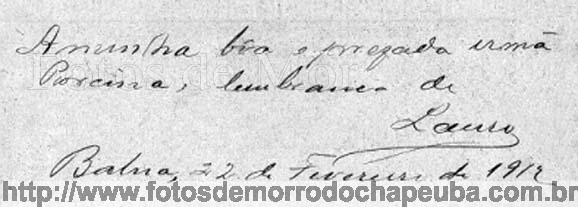 A minha bôa e prezada irmã
Porcina, lembrança de
Lauro
Bahia, 22 de Fevereiro de 191
http://www.fotosdemorrodochapeuba.com.br